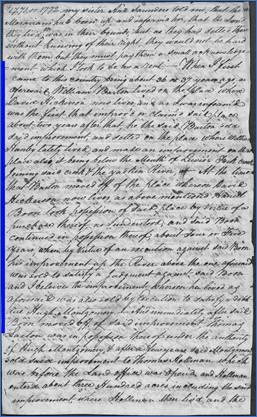 1771 or 1772 my sister And Saunders told me, that the
Moravians had been up and informed her, that the Land
they lived was in their bounds but as they had settled there
without knowing of their right they would not
with them but they must pay them a small acknowledgement
about 2/6 or 5/ to be a rent. When I first
came to this country being about 36 or 37 years ago, as
aforesaid, William Buxton lived on the place where
David Hickerson now lives, and as I was informed
was the first that improved or claimed said place
about one year after that, he the said Buxton sold
said improvement and settled on the place where
Stanley lately lived and made an improvement on that
place also it being below the Mouth of Lewis's Fork creek
joining said creek & the Yadkin River. At the time
that Buxton moved off of the place whereon David
Hickerson now lives as above mentioned
Boon took possession of said place by virtue of a
purchase thereof as I understood, and said Boon
continued in possession thereof about four or five
years when by virtue of an execution against said Boon
his improvement up the River above the one aforesaid
was sold to satisfy a Judgment against said Boon
and I believe the improvement whereon he lived as
aforesaid was also sold by Execution to satisfy a debt
due Hugh Montgomery. And immediately after said
Boon moved off of said improvement Thomas
was in possession thereof under the authority
of Hugh Montgomery & after some years said Montgomery
sold said improvement to Thomas Holleman
was before the Land office was opened and Holleman
entered about three Hundred acres including the said
improvement where Holleman then lived, and the